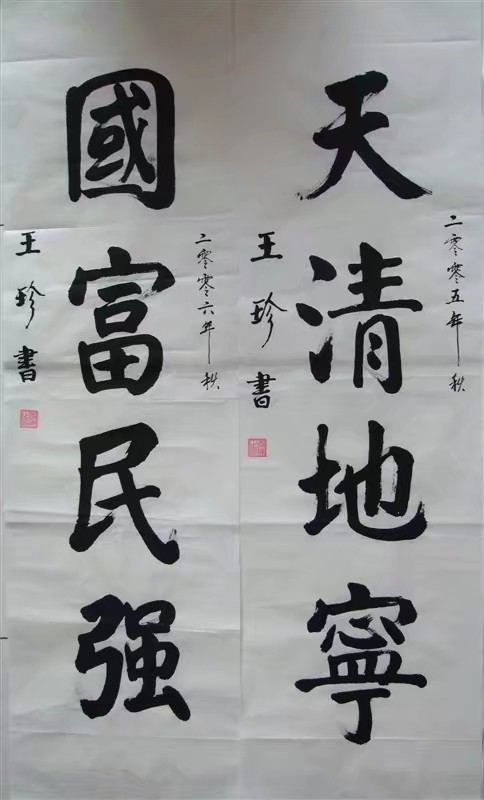 天清地寧
二零零五年秋
王珍書
國富民强
二零零六年秋
王珍書